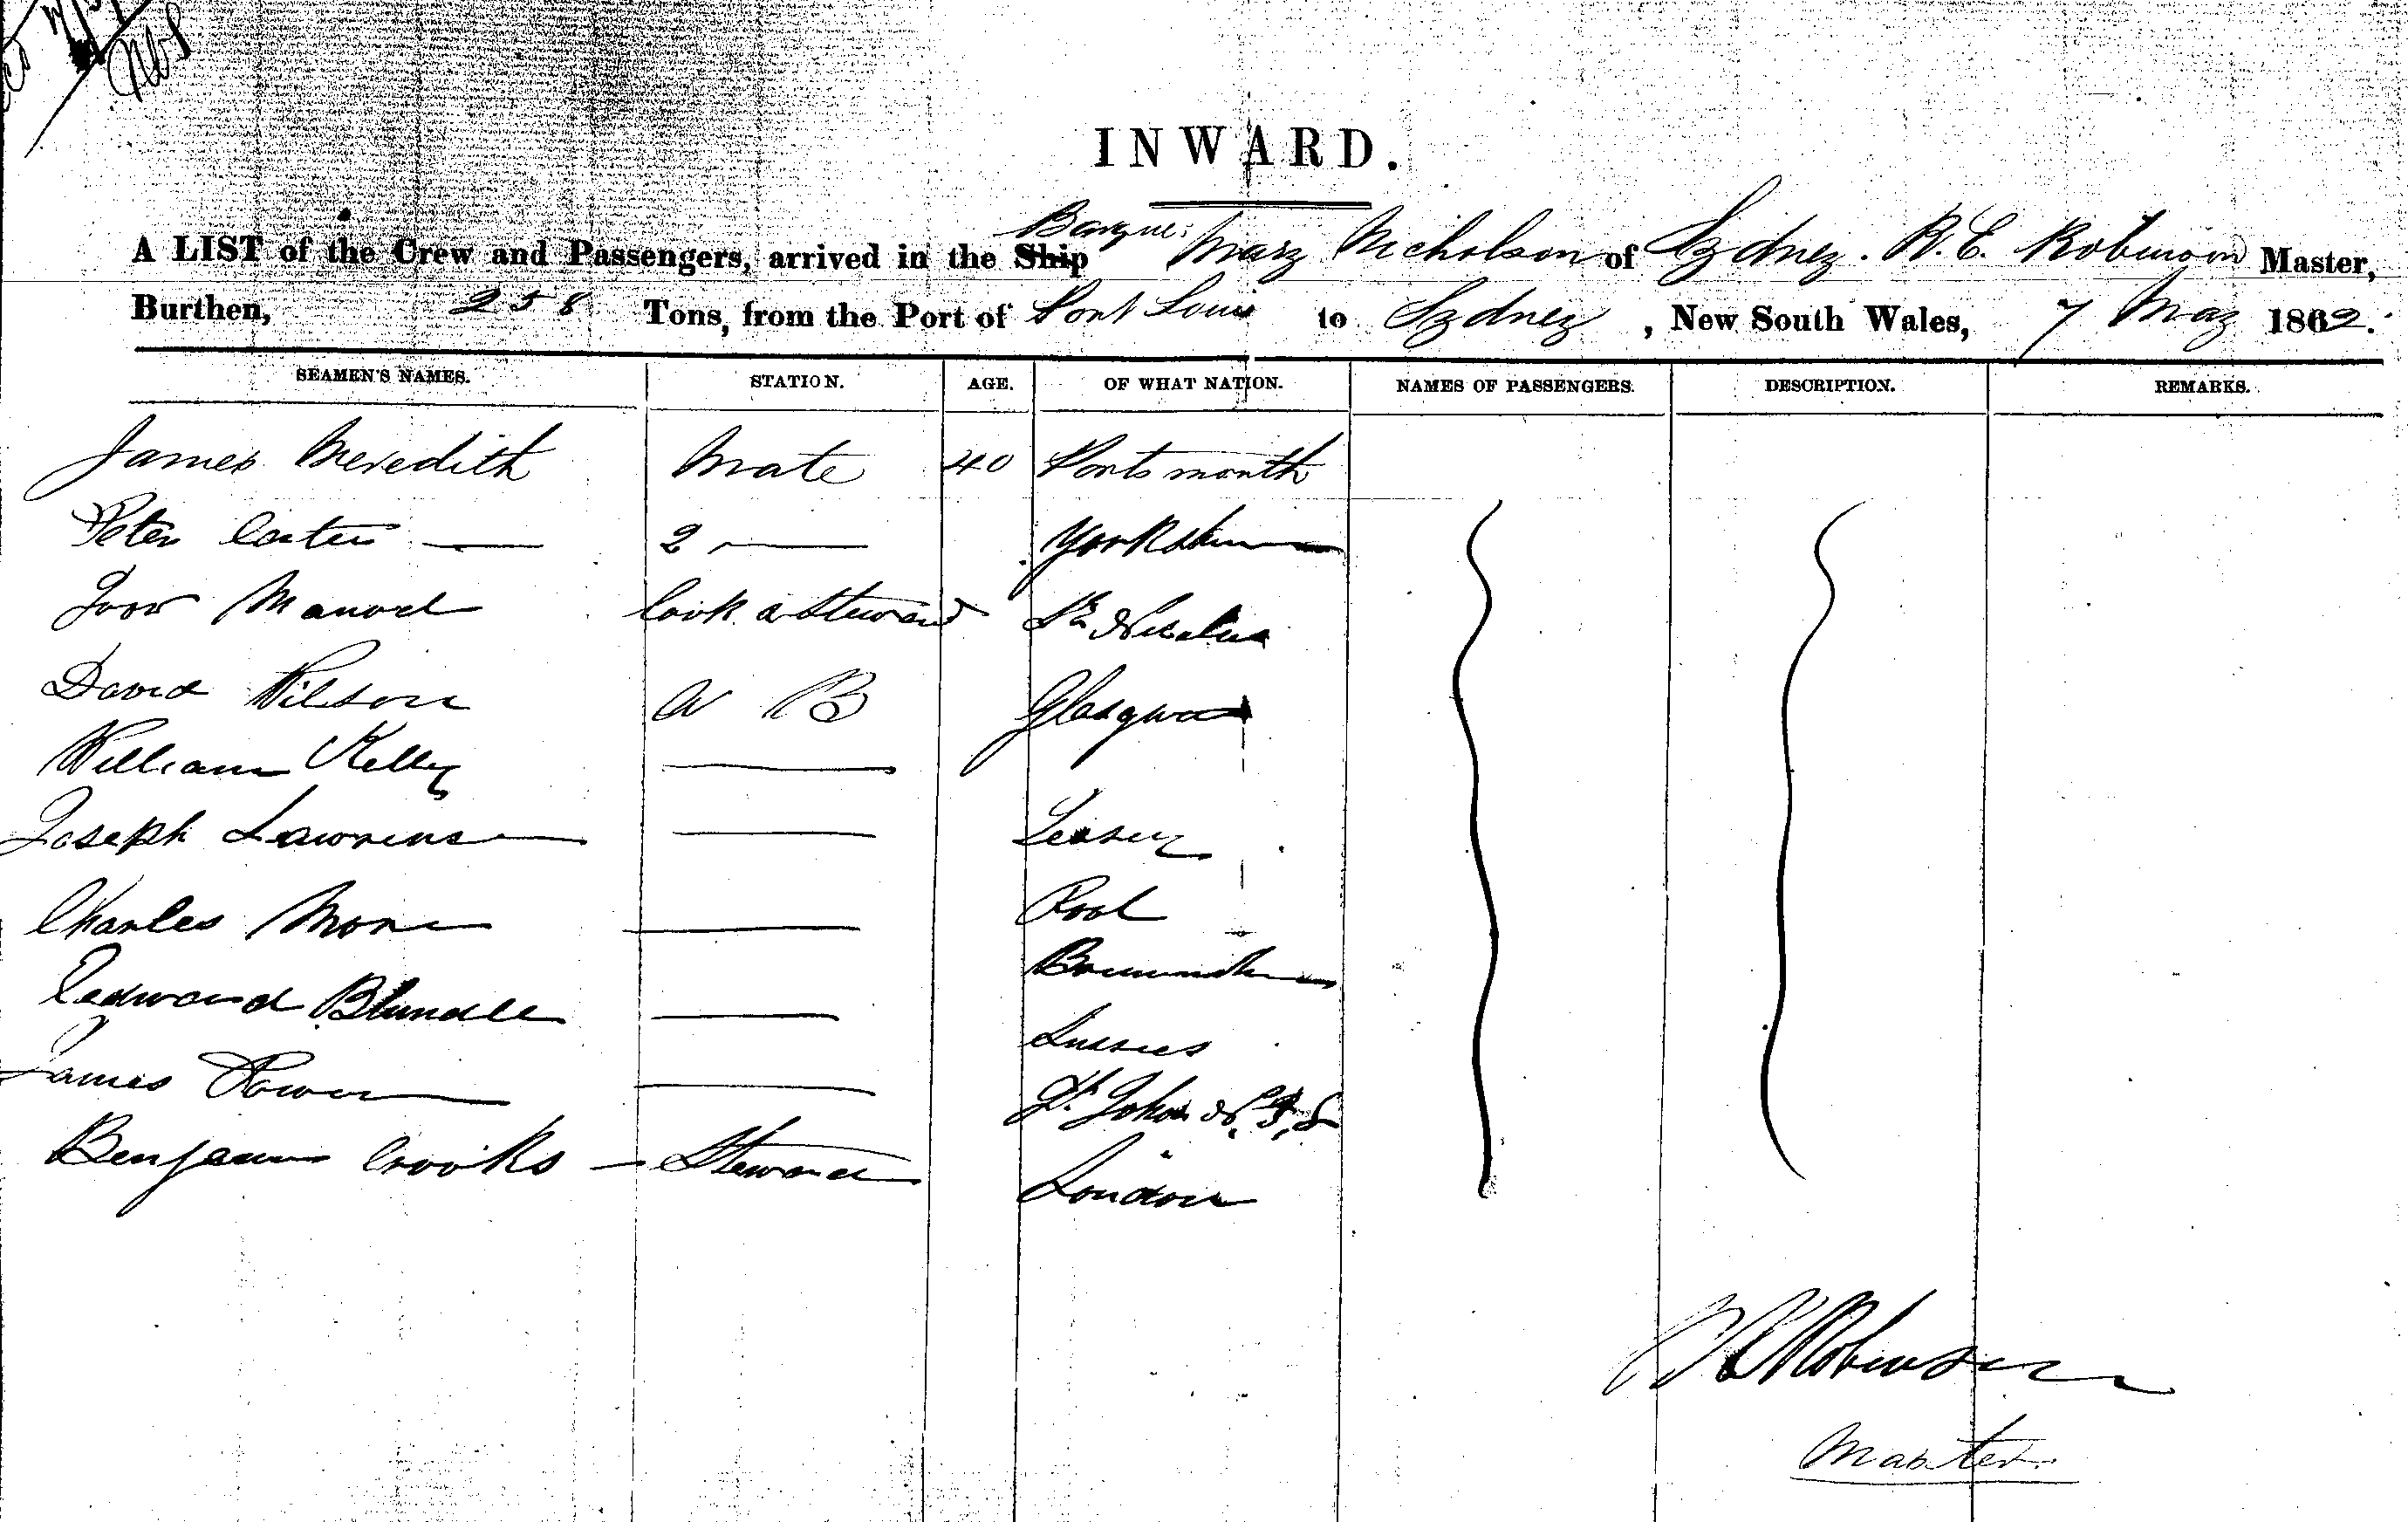 INWARD.
Barque
A LIST of the Crew and Passengers, arrived in the Ship Mary Nicholson of Sydney. R. E. Robinson Master,
Burthen, 258 Tons, from the Port of Port Louis to Sydney, New South Wales, 7 May 1862.
SEAMEN'S NAMES. STATION. AGE. OF WHAT NATION. NAMES OF PASSENGERS. DESCRIPTION. REMARKS.
James Meredith Mate 40 Portsmouth
Peter Carter 2 Yorkshire
Manoel Cook & Steward St Nicholas
David Wilson A B Glasgow
William Kelly
Joseph Lawrence
Charles More
Edward Blundell
Sussex
James Power St. John N. B.
Benjamin Crooks Steward London
Robinson
Master